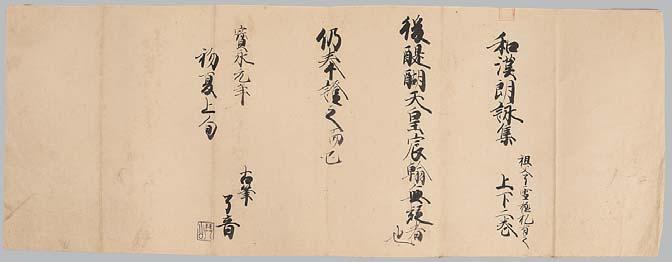 和漢朗詠集
上下二巻
後醍醐天皇宸翰無疑者也
仍奉證之而已
寳永元年
初夏上旬
古筆
了音